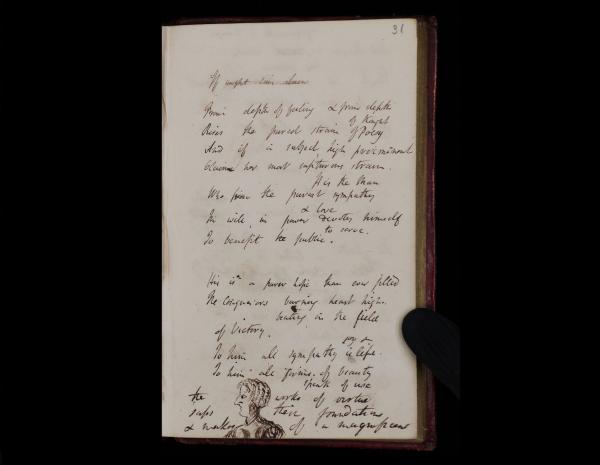 31
If
From depth of feeling & from depth
of thought
Rises the purest strain of Poesy
And if a subject high preeminent
her most rapturous strain.
It is the Man
Who from the purest sympathy
& love
In will, in power devotes himself
to serve.
To benefit the public.
His is a purer hope than ever filled
The Conquerors burning heart high-
beating, in the field
of Victory.
joy &
To him all sympathy is life.
To him all forms of beauty
speak of use
the works of virtue
saps their foundations
& makes of a magnificent